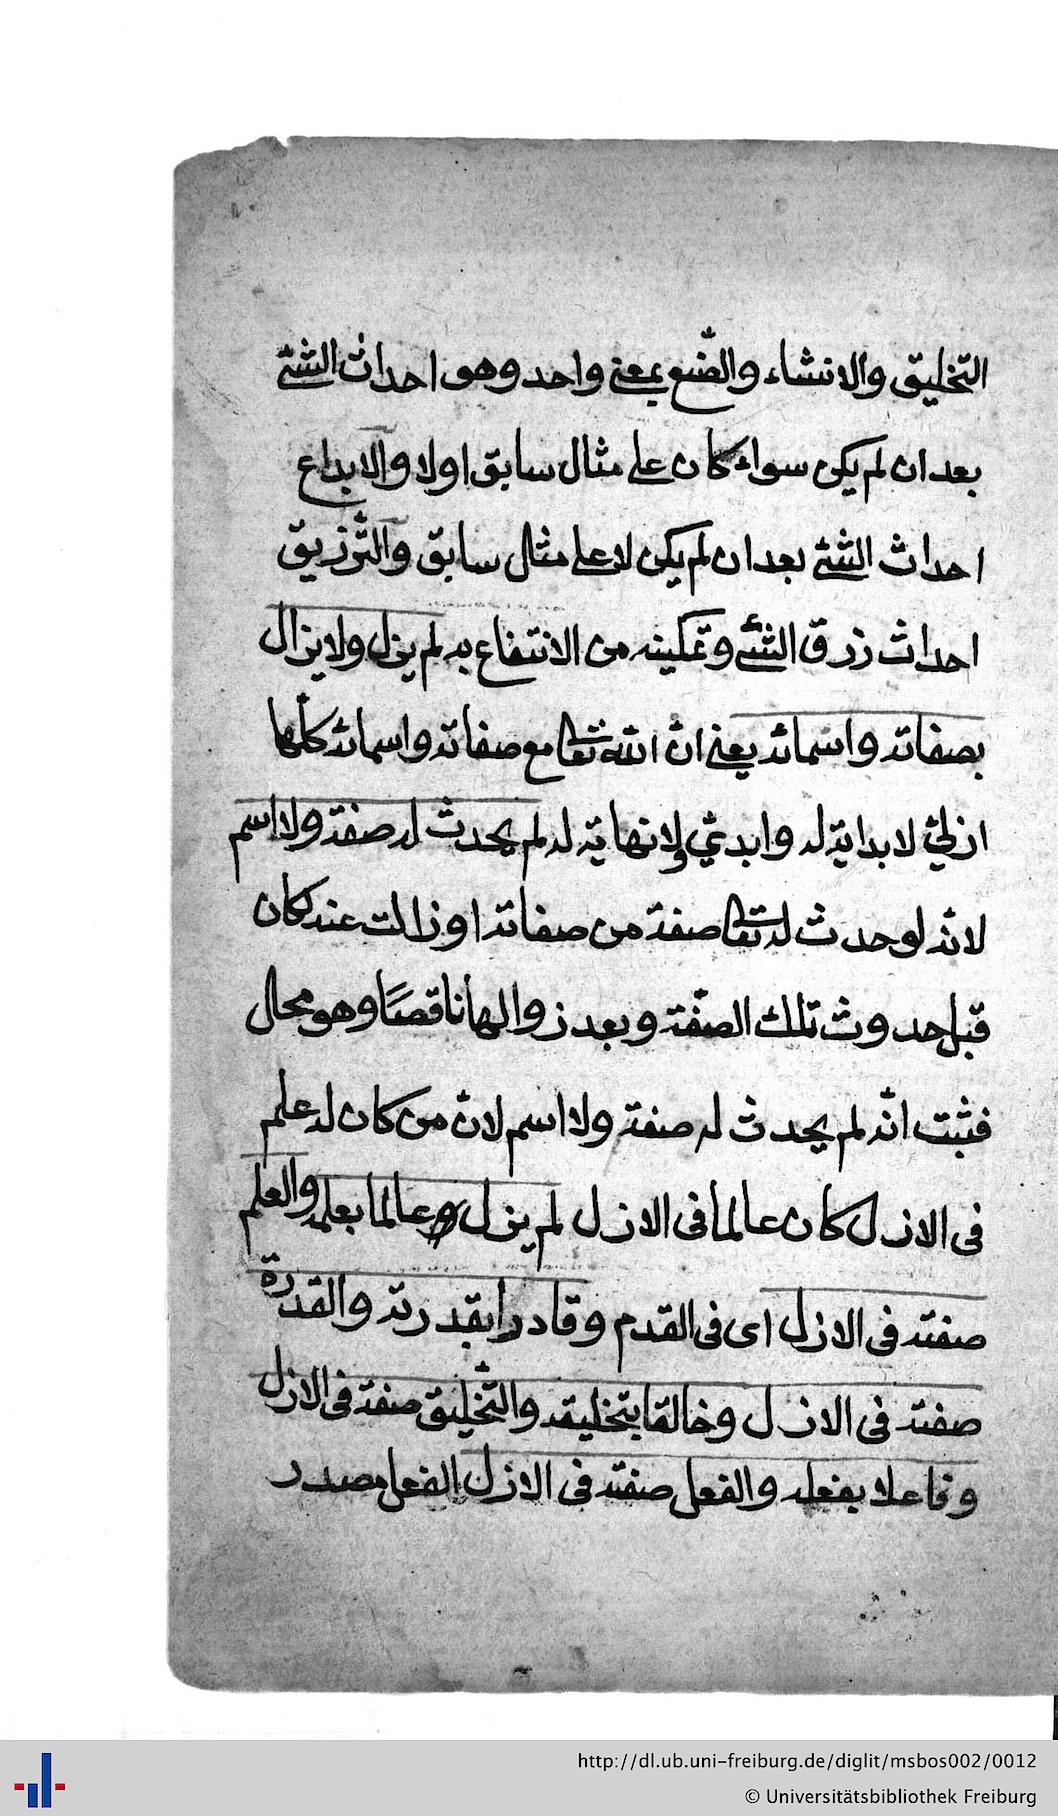 التخليق والانشاء والصّنع بمعنى واحد وهو احداث الشئ
بعد ان لم يكن سواء كان على مثال سابق اولا والابداع
احداث الشئ بعد ان لم يكن لا على مثال سابق والتّرزيق
احداث رزق الشئ وتمكينه من الانتفاع به لم يزل ولا يزال
بصفاته واسمائه يعنى انّ الله تعالى مع صفاته واسمائه كلّها
ازلىّ لا بداية له وابدىّ ولا نهاية له لم يحدث له صفة ولا اسم
لانّه لو حدث له تعالى صفة من صفاته او زالت عنه لكان
قبل حدوث تلك الصّفة وبعد زوالها ناقصًا وهو محال
فثبت انّه لم يحدث له صفة ولا اسم لانّ من كان له علم
فى الازل كان عالما فى الازل لم يزل عالما بعلمه والعلم
صفته فى الازل اى فى القدم وقادرا بقدرته والقدرة
صفته فى الازل وخالقا بتخليقه والتّخليق صفة فى الازل
وفاعلا بفعله والفعل صفته فى الازل الفعل مصدر
http://dl.ub.uni-freiburg.de/diglit/msbos002/0012
© Universitätsbibliothek Freiburg